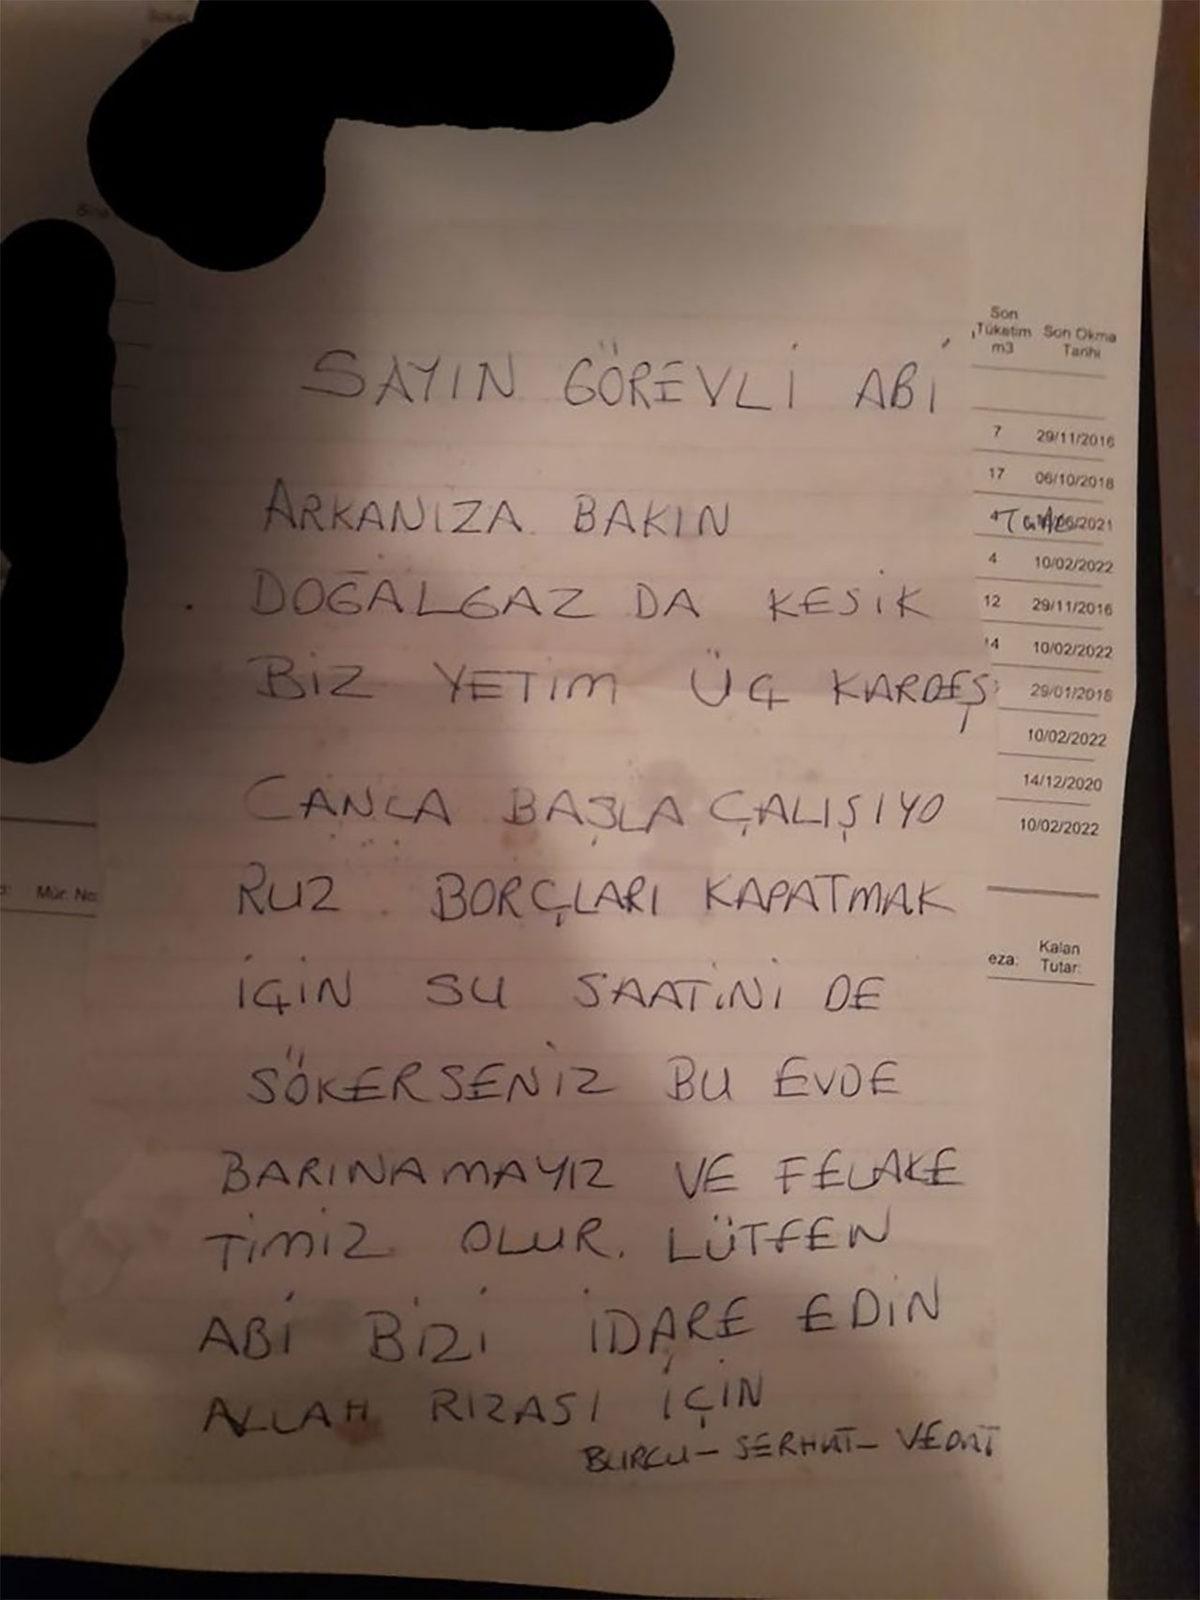 SAYIN GÖREVLİ ABİ
ARKANIZA BAKIN
DOĞALGAZ DA KESİK
BİZ YETİM ÜÇ KARDEŞ
CANLA BAŞLA ÇALIŞIYO
RUZ. BORÇLARI KAPATMAK
İÇİN SU SAATİNİ DE
SÖKERSENİZ BU EVDE
BARINAMAYIZ VE FELAKE
TİMİZ OLUR. LÜTFEN
ABİ BİZİ İDARE EDİN
ALLAH RIZASI İÇİN
BURCU - SERHAT - VEDAT
Son Tüketim m3 Son Okma Tarihi
7 29/11/2016
17 06/10/2018
4 /2021
4 10/02/2022
12 29/11/2016
14 10/02/2022
29/01/2018
10/02/2022
14/12/2020
10/02/2022
Mür. No:
eza: Kalan Tutar: